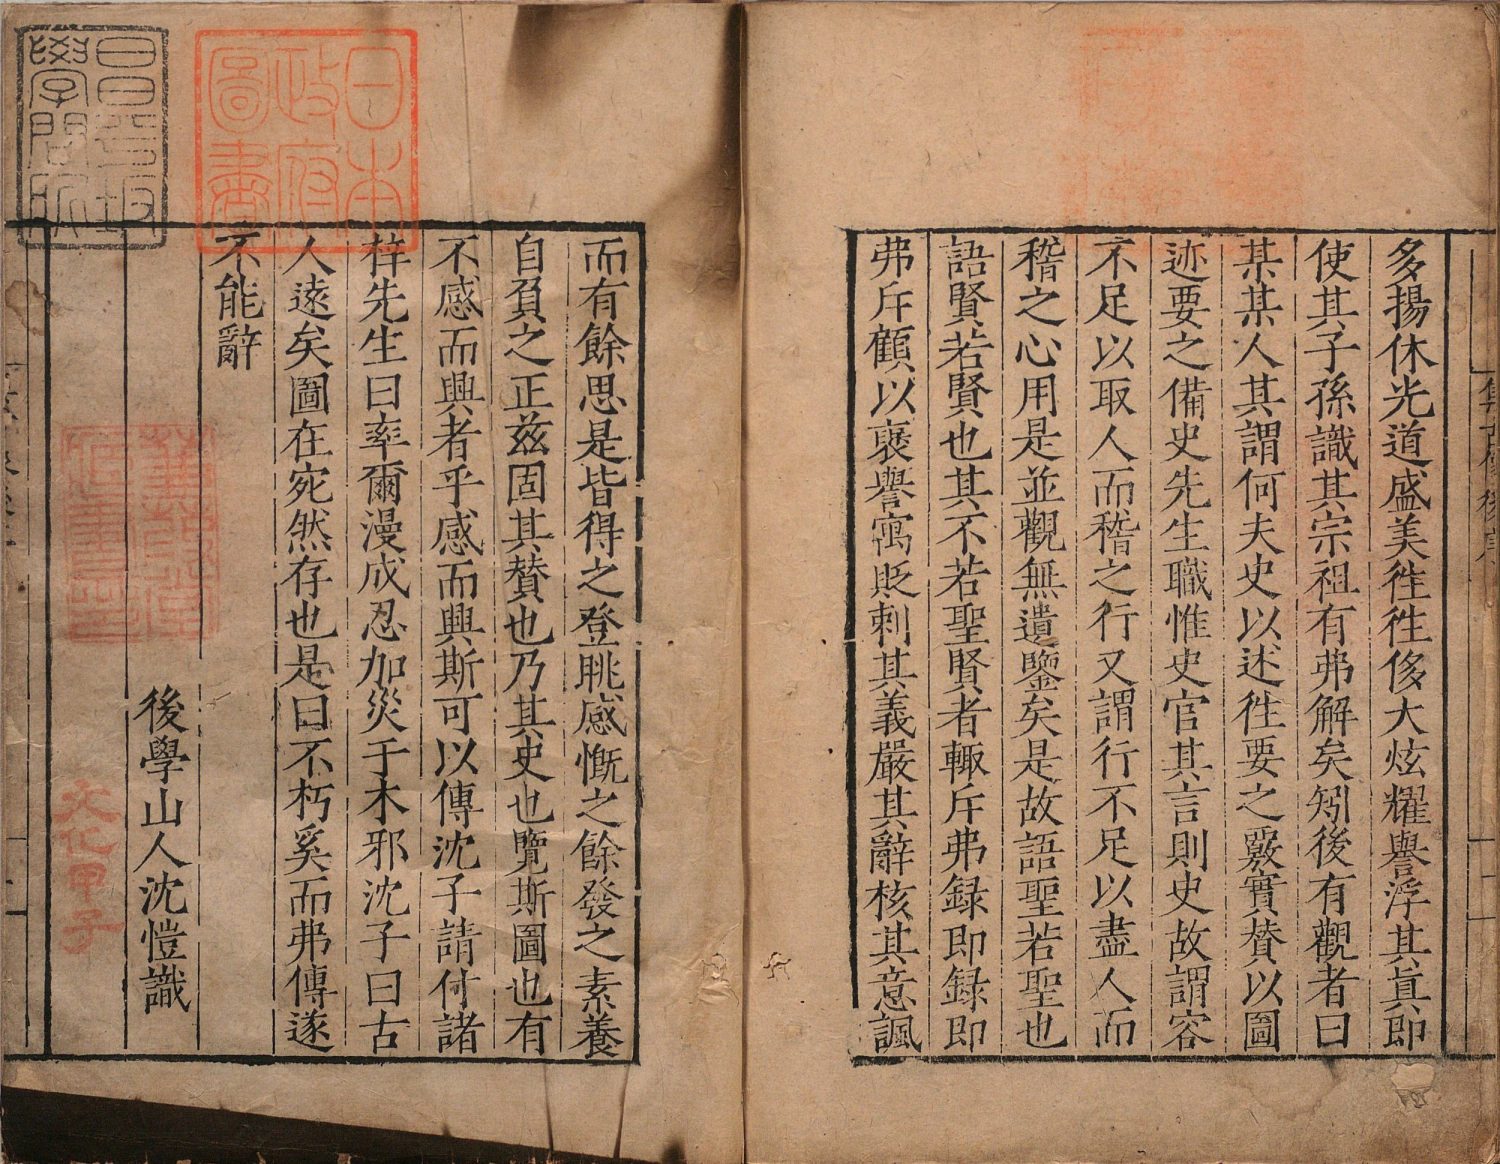 多揚休光道盛美徃徃侈大炫耀譽浮其眞即
使其子孫識其宗祖有弗解矣矧後有觀者曰
某某人其謂何夫史以述徃要之覈實贊以圖
迹要之備史先生職惟史官其言則史故謂容
不足以取人而稽之行又謂行不足以盡人而
稽之心用是並觀無遺鑒矣是故語聖若聖也
語賢若賢也其不若聖賢者輙斥弗録即録即
弗斥顧以褒譽寓貶刺其義嚴其辭核其意諷
而有餘思是皆得之登眺感慨之餘發之素養
自負之正兹固其贊也乃其史也覽斯圖也有
不感而興者乎感而興斯可以傳沈子請付諸
梓先生曰率爾漫成忍加災于木邪沈子曰古
人遠矣圖在宛然存也是曰不朽奚而弗傳遂
不能辭
後學山人沈愷識
日本
政府
圖書
昌平坂
學問所
文化甲子